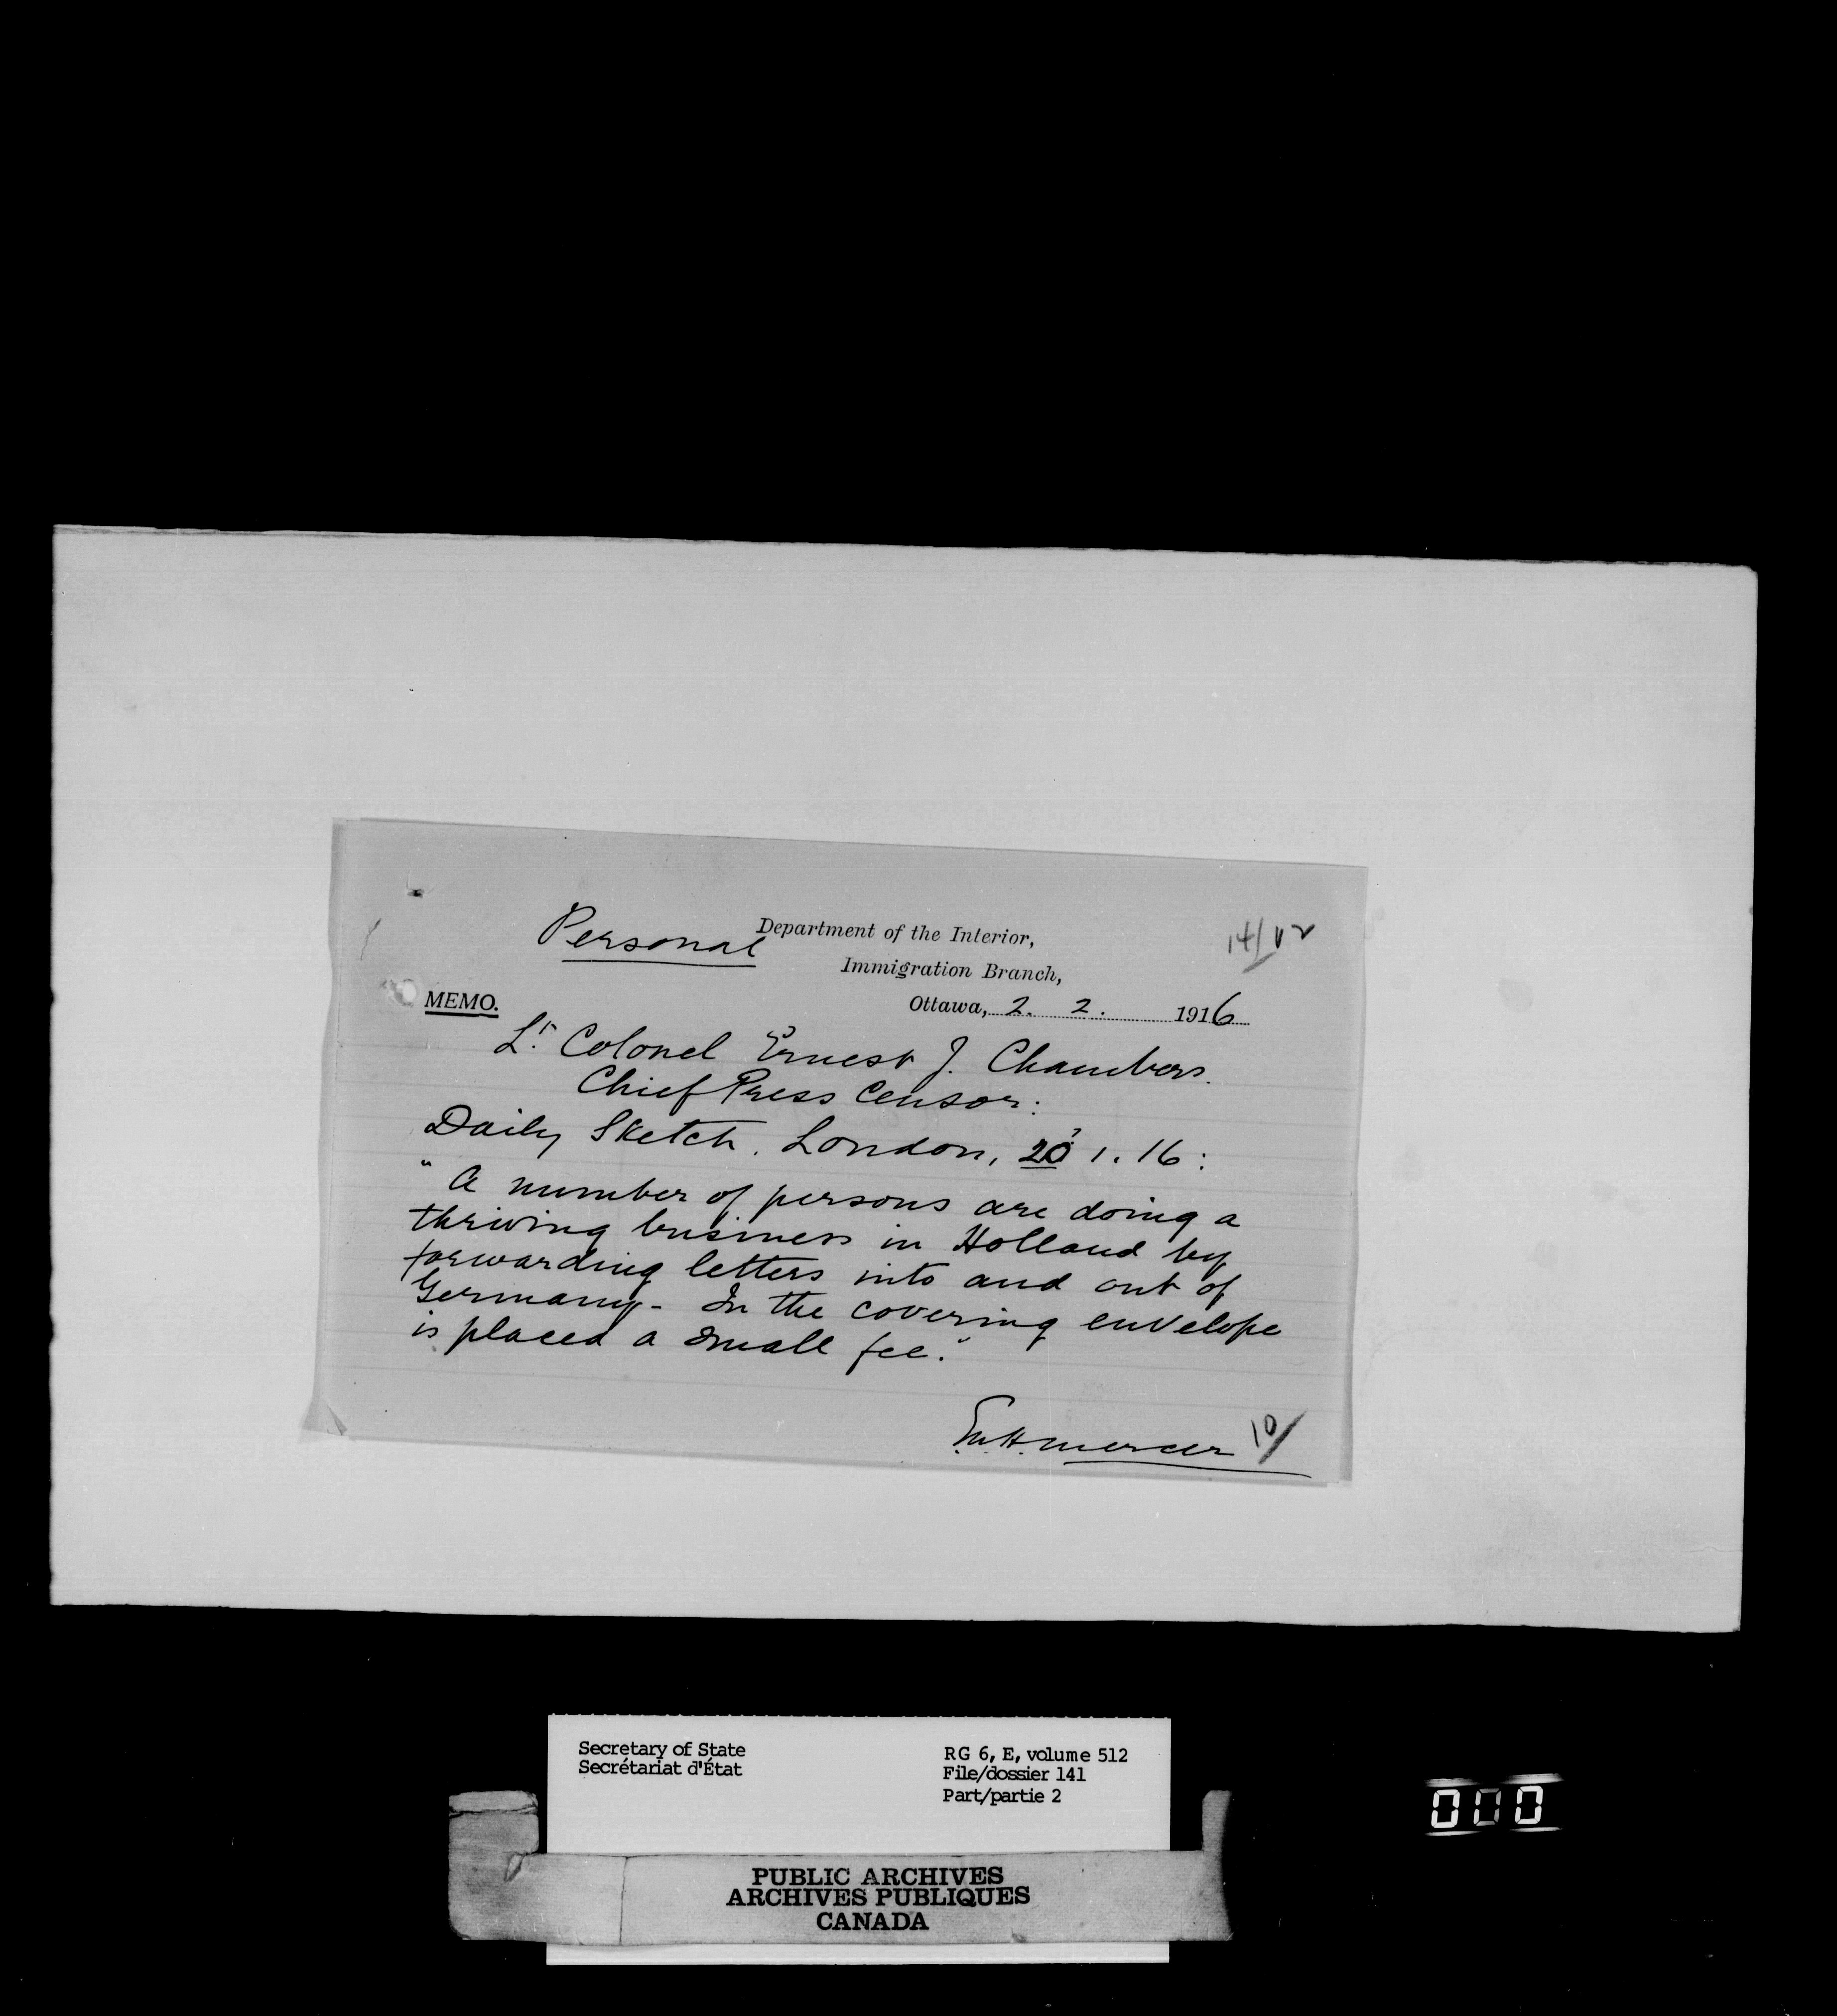 Personal
Department of the Interior,
Immigration Branch,
14/V2
MEMO.
Ottawa, 2. 2. 1916
Lt. Colonel Ernest J. Chambers.
Chief Press Censor:
Daily Sketch. London, 20 1. 16:
"A number of persons are doing a
thriving business in Holland by
forwarding letters into and out of
Germany - In the covering envelope
is placed a small fee."
mercer
10/
Secretary of State
Secrétariat d'État
RG 6, E, volume 512
File/dossier 141
Part/partie 2
000
PUBLIC ARCHIVES
ARCHIVES PUBLIQUES
CANADA